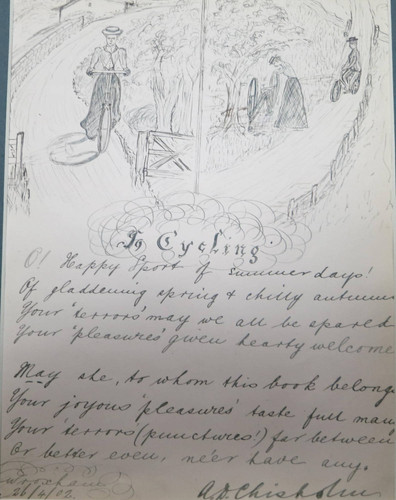 To Cycling.
O! Happy Sport of summer days!
Of gladdening spring & chilly autumn
Your 'terrors' may we all be spared
Your 'pleasures' given hearty welcome
May she, to whom this book belongs
Your joyous 'pleasures' taste full man
Your 'terrors (punctures!) far between
Or better even, ne'er have any.
Wroxham
26/4/02.
A.D. Chisholm